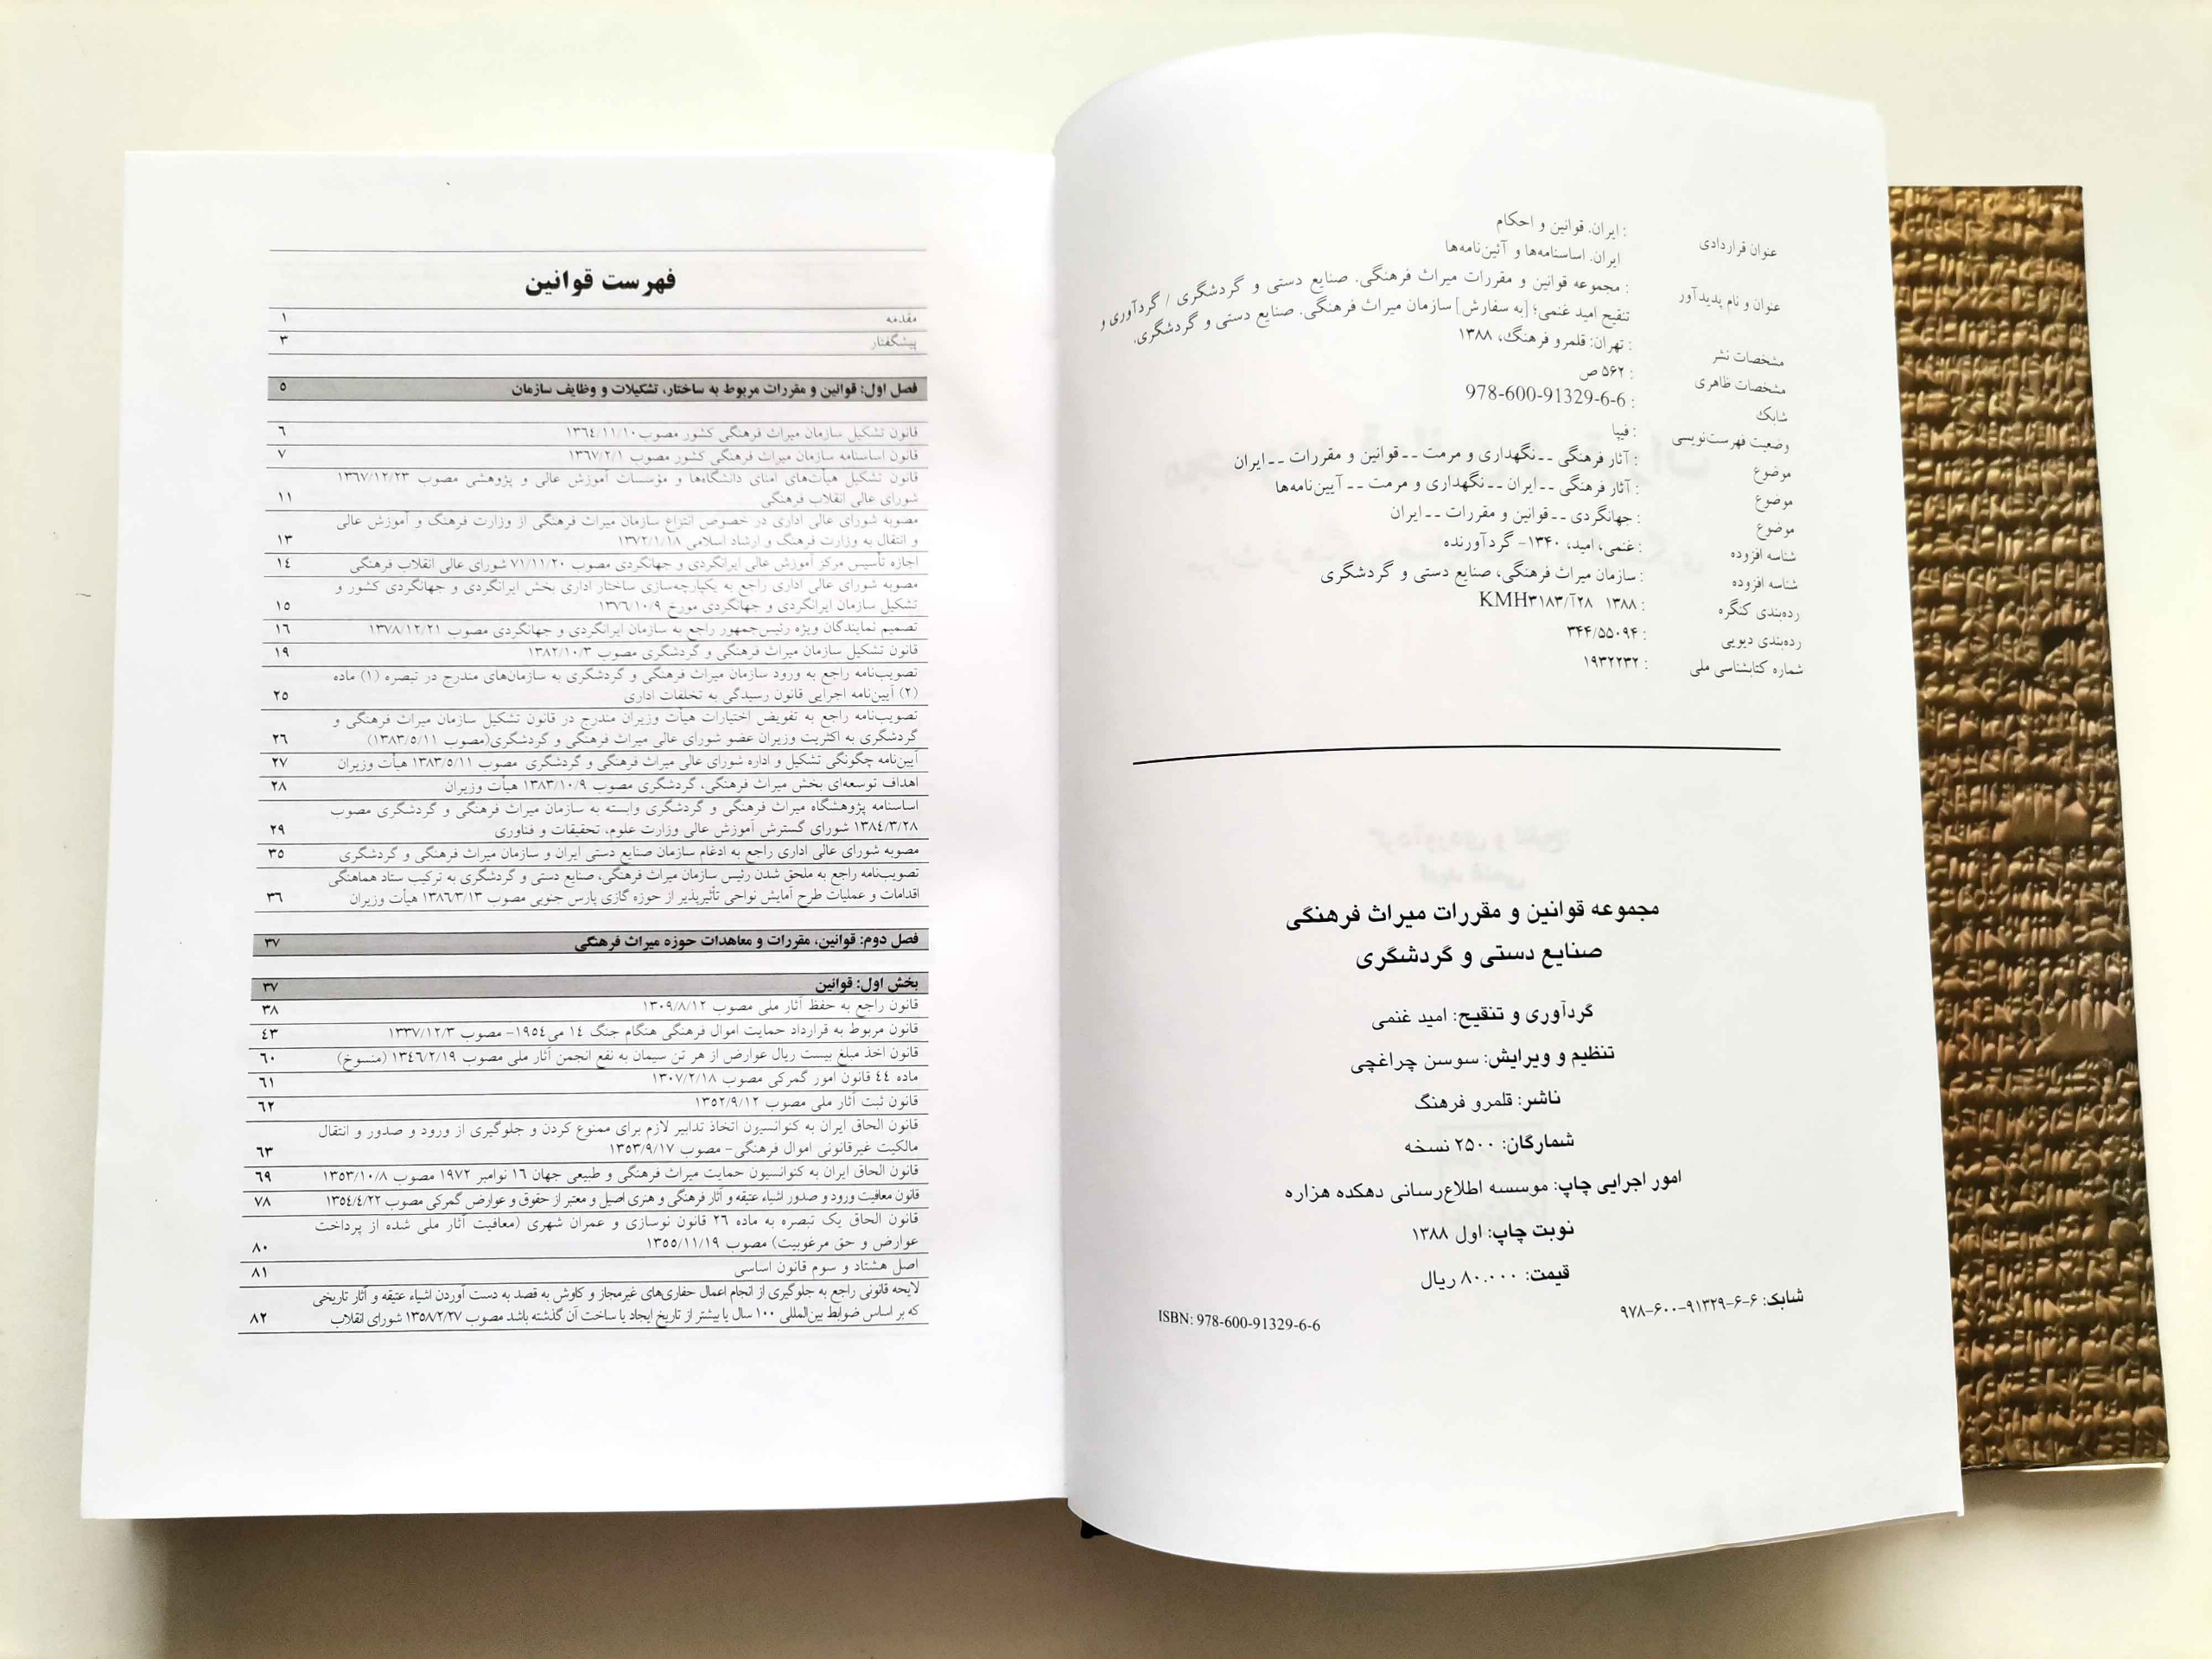 عنوان قراردادی : ایران. قوانین و احکام
ایران. اساسنامه‌ها و آئین‌نامه‌ها
عنوان و نام پدیدآور : مجموعه قوانین و مقررات میراث فرهنگی. صنایع دستی و گردشگری / گردآوری و
تنقیح امید غنمی؛ [به سفارش] سازمان میراث فرهنگی. صنایع دستی و گردشگری.
مشخصات نشر : تهران: قلمرو فرهنگ، ۱۳۸۸
مشخصات ظاهری : ۵۶۲ ص
شابک : 978-600-91329-6-6
وضعیت فهرست‌نویسی : فیپا
موضوع : آثار فرهنگی --نگهداری و مرمت --قوانین و مقررات --ایران
موضوع : آثار فرهنگی --ایران --نگهداری و مرمت -- آیین‌نامه‌ها
موضوع : جهانگردی --قوانین و مقررات --ایران
شناسه افزوده : غنمی، امید، ۱۳۴۰- گردآورنده
شناسه افزوده : سازمان میراث فرهنگی، صنایع دستی و گردشگری
رده‌بندی کنگره : ۱۳۸۸ ۲۸آ/KMH۳۱۸۳
رده‌بندی دیویی : ۳۴۴/۵۵۰۹۴
شماره کتابشناسی ملی : ۱۹۳۲۲۳۲
مجموعه قوانین و مقررات میراث فرهنگی
صنایع دستی و گردشگری
گردآوری و تنقیح: امید غنمی
تنظیم و ویرایش: سوسن چراغچی
ناشر: قلمرو فرهنگ
شمارگان: ۲۵۰۰ نسخه
امور اجرایی چاپ: موسسه اطلاع‌رسانی دهکده هزاره
نوبت چاپ: اول ۱۳۸۸
قیمت: ۸۰.۰۰۰ ریال
شابک: ۶-۶-۹۱۳۲۹-۶۰۰-۹۷۸
ISBN: 978-600-91329-6-6
فهرست قوانین
مقدمه ۱
پیشگفتار ۳
فصل اول: قوانین و مقررات مربوط به ساختار، تشکیلات و وظایف سازمان ۵
قانون تشکیل سازمان میراث فرهنگی کشور مصوب ۱۳٦٤/۱۱/۱۰ ٦
قانون اساسنامه سازمان میراث فرهنگی کشور مصوب ۱۳٦۷/۲/۱ ۷
قانون تشکیل هیأت‌های امنای دانشگاه‌ها و مؤسسات آموزش عالی و پژوهشی مصوب ۱۳٦۷/۱۲/۲۳
شورای عالی انقلاب فرهنگی ۱۱
مصوبه شورای عالی اداری در خصوص انتزاع سازمان میراث فرهنگی از وزارت فرهنگ و آموزش عالی
و انتقال به وزارت فرهنگ و ارشاد اسلامی ۱۳۷۲/۱/۱۸ ۱۳
اجازه تأسیس مرکز آموزش عالی ایرانگردی و جهانگردی مصوب ۷۱/۱۱/۲۰ شورای عالی انقلاب فرهنگی ۱٤
مصوبه شورای عالی اداری راجع به یکپارچه‌سازی ساختار اداری بخش ایرانگردی و جهانگردی کشور و
تشکیل سازمان ایرانگردی و جهانگردی مورخ ۱۳۷٦/۱۰/۹ ۱٥
تصمیم نمایندگان ویژه رئیس‌جمهور راجع به سازمان ایرانگردی و جهانگردی مصوب ۱۳۷۸/۱۲/۲۱ ۱٦
قانون تشکیل سازمان میراث فرهنگی و گردشگری مصوب ۱۳۸۲/۱۰/۳ ۱۹
تصویب‌نامه راجع به ورود سازمان میراث فرهنگی و گردشگری به سازمان‌های مندرج در تبصره (۱) ماده
(۲) آیین‌نامه اجرایی قانون رسیدگی به تخلفات اداری ۲٥
تصویب‌نامه راجع به تفویض اختیارات هیأت وزیران مندرج در قانون تشکیل سازمان میراث فرهنگی و
گردشگری به اکثریت وزیران عضو شورای عالی میراث فرهنگی و گردشگری(مصوب ۱۳۸۳/٥/۱۱) ۲٦
آیین‌نامه چگونگی تشکیل و اداره شورای عالی میراث فرهنگی و گردشگری مصوب ۱۳۸۳/٥/۱۱ هیأت وزیران ۲۷
اهداف توسعه‌ای بخش میراث فرهنگی، گردشگری مصوب ۱۳۸۳/۱۰/۹ هیأت وزیران ۲۸
اساسنامه پژوهشگاه میراث فرهنگی و گردشگری وابسته به سازمان میراث فرهنگی و گردشگری مصوب
۱۳۸٤/۳/۲۸ شورای گسترش آموزش عالی وزارت علوم، تحقیقات و فناوری ۲۹
مصوبه شورای عالی اداری راجع به ادغام سازمان صنایع دستی ایران و سازمان میراث فرهنگی و گردشگری ۳٥
تصویب‌نامه راجع به ملحق شدن رئیس سازمان میراث فرهنگی، صنایع دستی و گردشگری به ترکیب ستاد هماهنگی
اقدامات و عملیات طرح آمایش نواحی تأثیرپذیر از حوزه گازی پارس جنوبی مصوب ۱۳۸٦/۳/۱۳ هیأت وزیران ۳٦
فصل دوم: قوانین، مقررات و معاهدات حوزه میراث فرهنگی ۳۷
بخش اول: قوانین ۳۷
قانون راجع به حفظ آثار ملی مصوب ۱۳۰۹/۸/۱۲ ۳۸
قانون مربوط به قرارداد حمایت اموال فرهنگی هنگام جنگ ۱٤ می ۱۹٥٤- مصوب ۱۳۳۷/۱۲/۳ ٤۳
قانون اخذ مبلغ بیست ریال عوارض از هر تن سیمان به نفع انجمن آثار ملی مصوب ۱۳٤٦/۲/۱۹ (منسوخ) ٦۰
ماده ٤٤ قانون امور گمرکی مصوب ۱۳۰۷/۲/۱۸ ٦۱
قانون ثبت آثار ملی مصوب ۱۳٥۲/۹/۱۲ ٦۲
قانون الحاق ایران به کنوانسیون اتخاذ تدابیر لازم برای ممنوع کردن و جلوگیری از ورود و صدور و انتقال
مالکیت غیرقانونی اموال فرهنگی- مصوب ۱۳٥۳/۹/۱۷ ٦۳
قانون الحاق ایران به کنوانسیون حمایت میراث فرهنگی و طبیعی جهان ۱٦ نوامبر ۱۹۷۲ مصوب ۱۳٥۳/۱۰/۸ ٦۹
قانون معافیت ورود و صدور اشیاء عتیقه و آثار فرهنگی و هنری اصیل و معتبر از حقوق و عوارض گمرکی مصوب ۱۳٥٤/٤/۲۲ ۷۸
قانون الحاق یک تبصره به ماده ۲٦ قانون نوسازی و عمران شهری (معافیت آثار ملی شده از پرداخت
عوارض و حق مرغوبیت) مصوب ۱۳٥٥/۱۱/۱۹ ۸۰
اصل هشتاد و سوم قانون اساسی ۸۱
لایحه قانونی راجع به جلوگیری از انجام اعمال حفاری‌های غیرمجاز و کاوش به قصد به دست آوردن اشیاء عتیقه و آثار تاریخی
که بر اساس ضوابط بین‌المللی ۱۰۰ سال یا بیشتر از تاریخ ایجاد یا ساخت آن گذشته باشد مصوب ۱۳٥۸/۲/۲۷ شورای انقلاب ۸۲